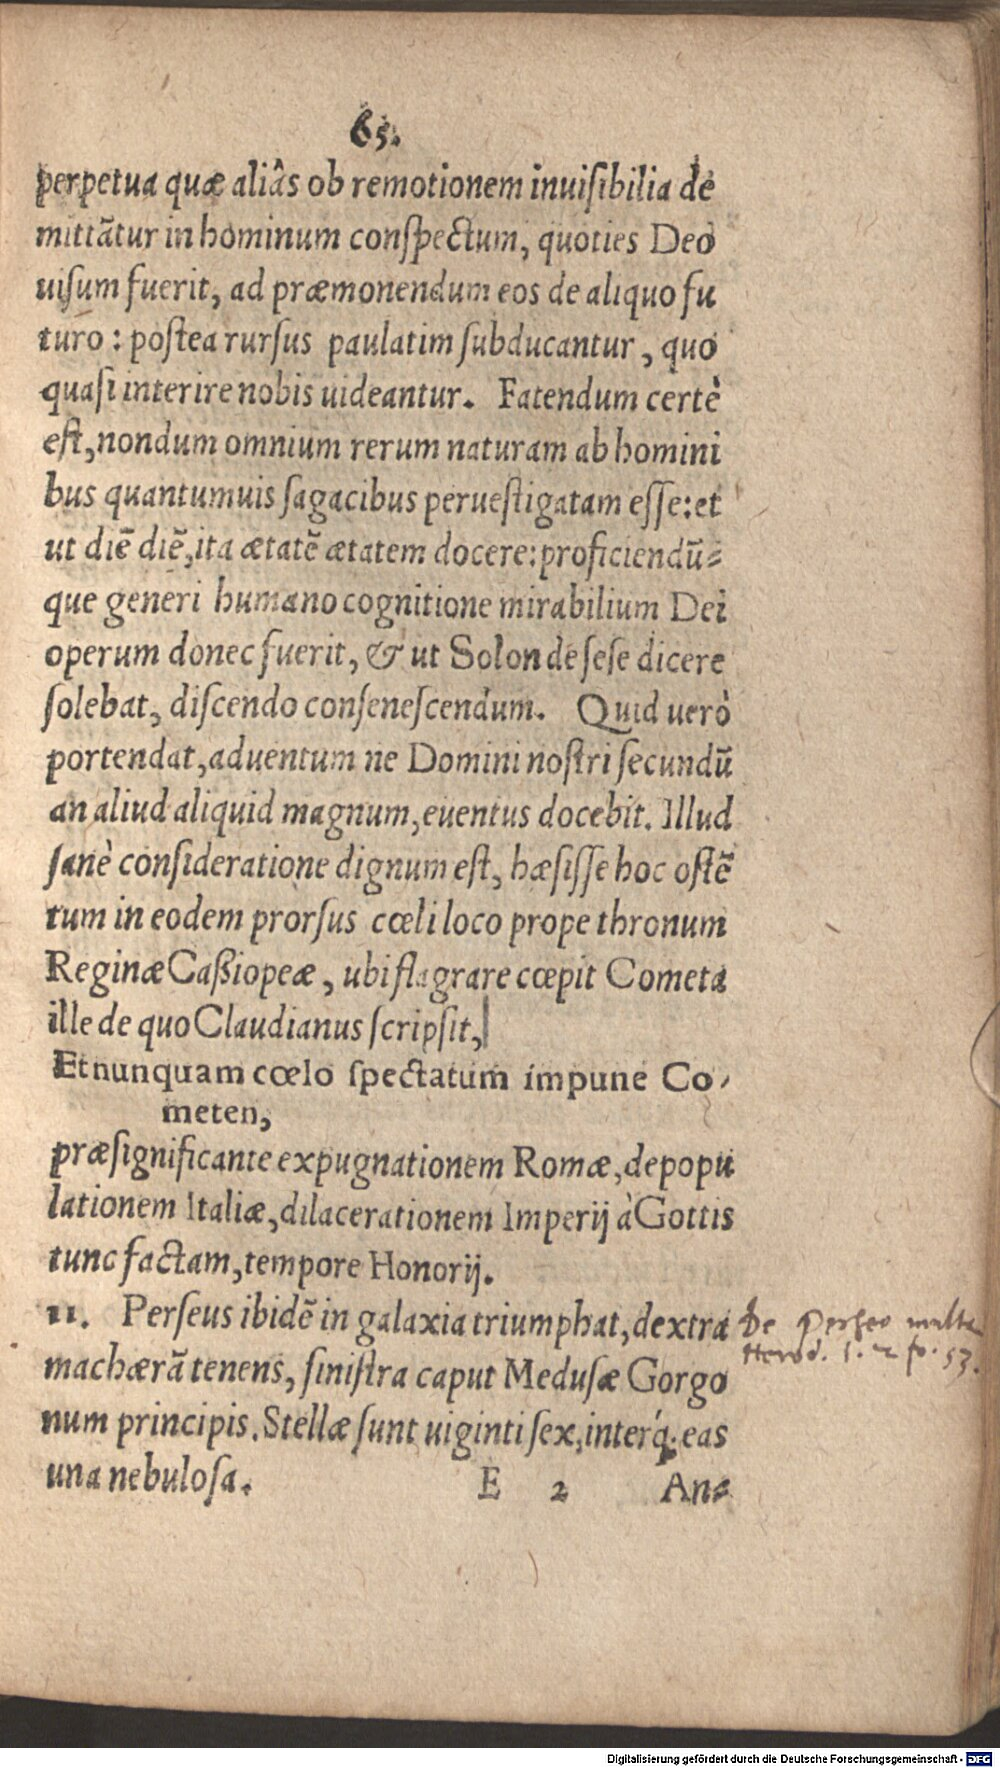 65.
perpetua quæ aliâs ob remotionem inuiſibilia de
mittātur in hominum conſpectum, quoties Deo
uiſum fuerit, ad præmonendum eos de aliquo fu
turo: poſtea rurſus paulatim ſubducantur, quo
quaſi interire nobis uideantur. Fatendum certè
eſt, nondum omnium rerum naturam ab homini
bus quantumuis ſagacibus perueſtigatam eſſe: et
ut diē diē, ita ætatē ætatem docere: proficiendū⸗
que generi humano cognitione mirabilium Dei
operum donec fuerit, & ut Solon de ſeſe dicere
ſolebat, diſcendo conſeneſcendum. Quid uerò
portendat, aduentum ne Domini noſtri ſecundū
an aliud aliquid magnum, euentus docebit. Illud
ſanè conſideratione dignum eſt, hæſiſſe hoc oſtē
tum in eodem prorſus cœli loco prope thronum
Reginæ Caßiopeæ, ubi flagrare cœpit Cometa
ille de quo Claudianus ſcripſit,
Et nunquam cœlo ſpectatum impune Co⸗
meten,
præſignificante expugnationem Romæ, depopu
lationem Italiæ, dilacerationem Imperij à Gottis
tunc factam, tempore Honorij.
11. Perſeus ibidē in galaxia triumphat, dextra
machærā tenens, ſiniſtra caput Meduſæ Gorgo
num principis. Stellæ ſunt uiginti ſex, interq́; eas
una nebuloſa.
E 2 An⸗
De Perseo multa
Herod. l. 2 fo. 53.
Digitalisierung gefördert durch die Deutsche Forschungsgemeinschaft - DFG